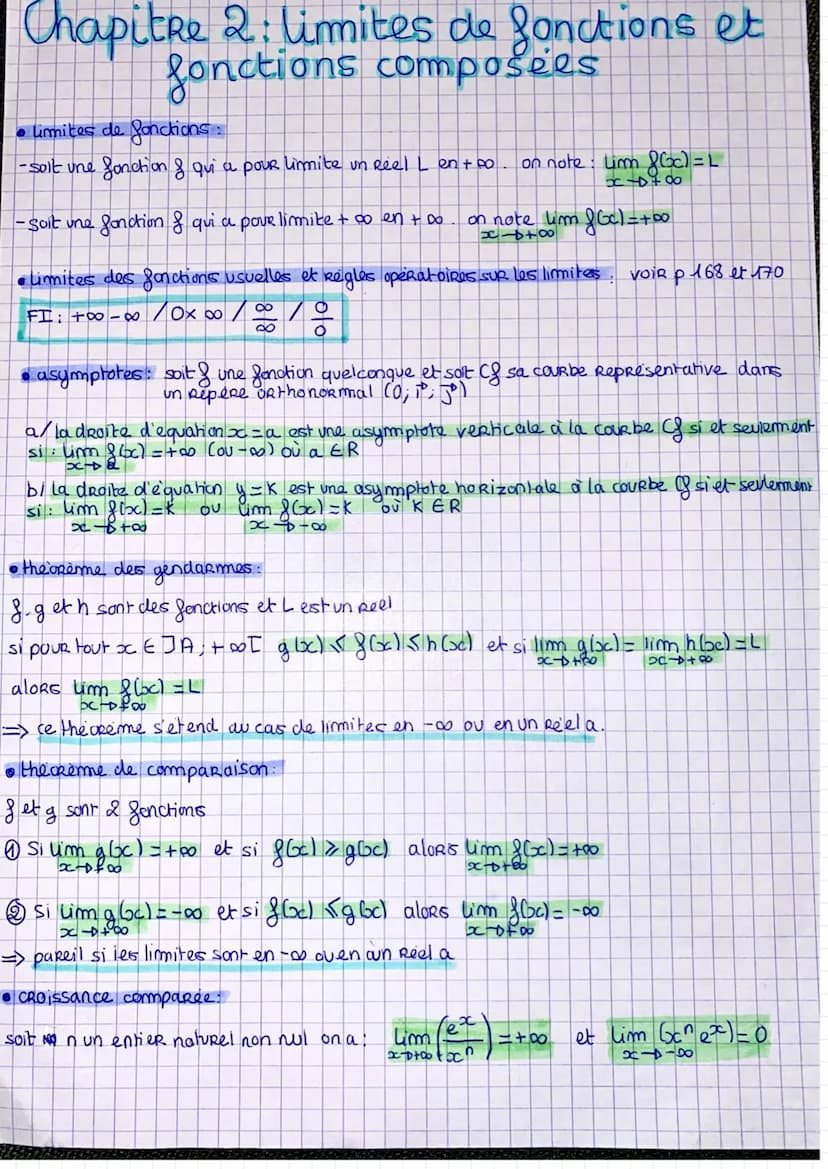 Chapitre 2: limites de fonctions et
fonctions composées
• limites de fonctions:
- soit une fonction f qui a pour limite un réel L en +∞. on note: lim f(x)=L
x→+∞
- soit une fonction f qui a pour limite +∞ en +∞. on note lim f(x)=+∞
x→+∞
• limites des fonctions usuelles et règles opératoires sur les limites. voir p 168 et 170
FI: +∞-∞ / 0×∞ / ∞/∞ / 0/0
• asymptotes: soit f une fonction quelconque et soit Cf sa courbe représentative dans
un repère orthonormal (O; i; j)
a/ la droite d'équation x=a est une asymptote verticale à la courbe Cf si et seulement
si: lim f(x)=+∞ (ou -∞) où a ∈ R
x→a
b/ La droite d'équation y=K est une asymptote horizontale à la courbe Cf si et seulement
si: lim f(x)=K ou lim f(x)=K où K ∈ R
x→+∞ x→-∞
• théorème des gendarmes:
f.g et h sont des fonctions et L est un réel
si pour tout x ∈ ]A; +∞[ g(x) ≤ f(x) ≤ h(x) et si lim g(x) = lim h(x) = L
x→+∞ x→+∞
alors lim f(x) = L
x→+∞
⇒ ce théorème s'étend au cas de limites en -∞ ou en un réel a.
• théorème de comparaison:
f et g sont 2 fonctions
① Si lim g(x) = +∞ et si f(x) ≥ g(x) alors lim f(x) = +∞
x→+∞ x→+∞
② Si lim g(x) = -∞ et si f(x) ≤ g(x) alors lim f(x) = -∞
x→+∞ x→+∞
⇒ pareil si les limites sont en -∞ ou en un réel a
• croissance comparée:
soit n un entier naturel non nul on a: lim (e^x/x^n) = +∞ et lim (x^n e^x) = 0
x→+∞ x→-∞